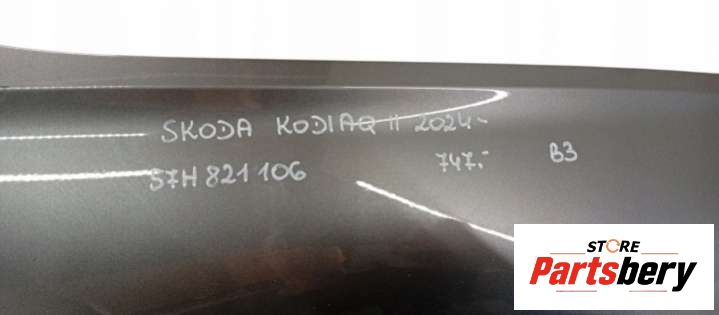 SKODA KODIAQ II 2024-
57H 821 106 747.- B3
STORE
Partsbery